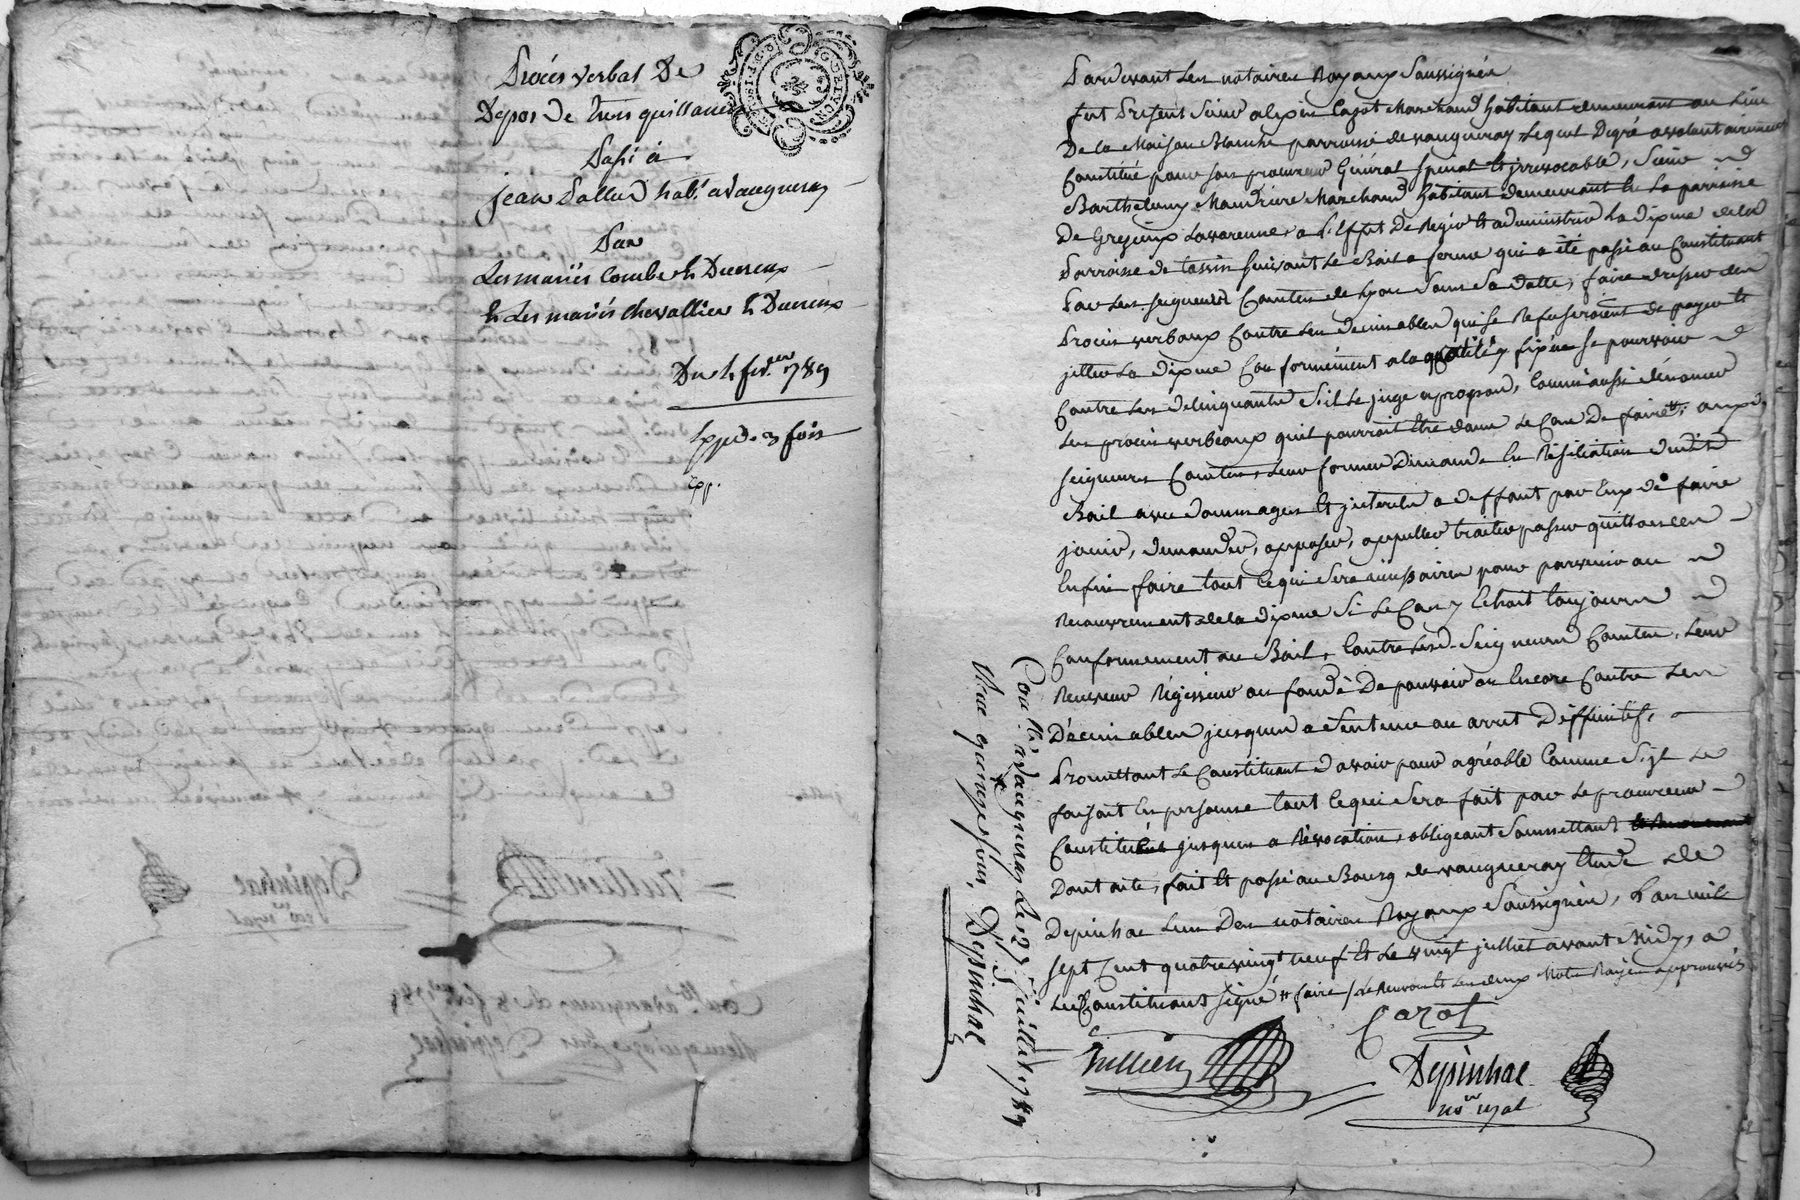 Procès verbal De
Depos de trois quittances
Passé à
jean Pallud hab.t a vaugneray
Par
Les mariés Combet & Ducreux
& Les mariés Chevallier & Ducreux
Du 4 fev.er 1789
Exp.
Pardevant Les notaires Royaux Soussignés
fut Present Sieur Cazot Marchand habitant demeurant au Lieu
De la Maison Blanche parroisse de vaugneray, Lequel De gré a volontairement
Constitué pour son procureur Général Special et irrévocable, Sieur
Barthelemy Marchand habitant demeurant en La parroisse
De Grezieux Lavarenne, a L'Effet De Regir et administrer La dixme de la
Parroisse de tassin suivant Le Bail a ferme qui a été passé au Constituant
Par Les seigneurs Comtes de Lyon Sous Sa datte, faire dresser des
Procès verbaux Contre Les decimables qui se Refuseroient de payer et
jetter La dixme Conformément a la quotité y fixée se pourvoir
Contre Les delinquants S'il Le juge apropos, Comme aussi dénoncer
Les procès verbeaux qu'il pourroit Etre dans Le Cas De faire, auxd.
seigneurs Comtes, Leur former Demande En Résiliation dudit
Bail avec dommages et interets a deffaut par Eux de faire
jouir, demander, opposer, appeller traiter passer quittances
Enfin faire tout Ce qui Sera nécessaire pour parvenir au
Recouvrement de la dixme Si Le Cas y Echoit toujours
Conformement au Bail, Contre Lesd. Seigneurs Comtes, Leur
Receveur Régisseur ou fondé De pouvoir ou Encore Contre Les
Décimables jusques a Sentence ou arret Deffinitif,
Promettant Le Constituant d'avoir pour agréable Comme S'il Le
faisoit En personne tout Ce qui Sera fait par Le procureur
Constitué jusques a Révocation, obligeant Soumettant
Dont acte, fait et passé au Bourg de vaugneray Etude de
Depinhac L'un Des notaires Royaux Soussignés, L'an mil
sept Cent quatre vingt neuf et Le vingt juillet avant Midy, a
Le Constituant signé # faire / Le Renvoi et Les deux approuvés
Cazot
Jullien
Depinhac
no.re royal
Con.lé a vaugneray Le 27 Juillet 1789
Reçu quinze sous, Depinhac